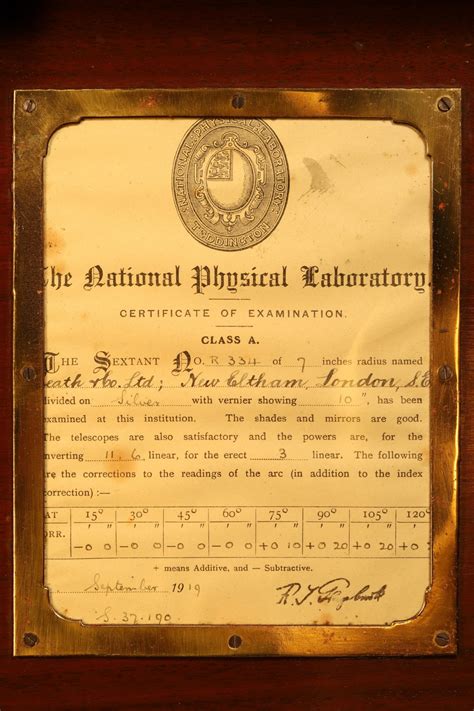 NATIONAL PHYSICAL LABORATORY
TEDDINGTON
The National Physical Laboratory.
CERTIFICATE OF EXAMINATION.
CLASS A.
THE SEXTANT NO. R 334 of 7 inches radius named
eath & Co. Ltd; New Eltham, London, S.E
divided on Silver with vernier showing 10", has been
examined at this institution. The shades and mirrors are good.
The telescopes are also satisfactory and the powers are, for the
nverting 11.6 linear, for the erect 3 linear. The following
are the corrections to the readings of the arc (in addition to the index
correction) :—
AT 15° 30° 45° 60° 75° 90° 105° 120°
ORR. ' " ' " ' " ' " ' " ' " ' " '
-0 0 -0 0 -0 0 -0 0 +0 10 +0 20 +0 20 +0
+ means Additive, and — Subtractive.
September 1919
S. 37.190